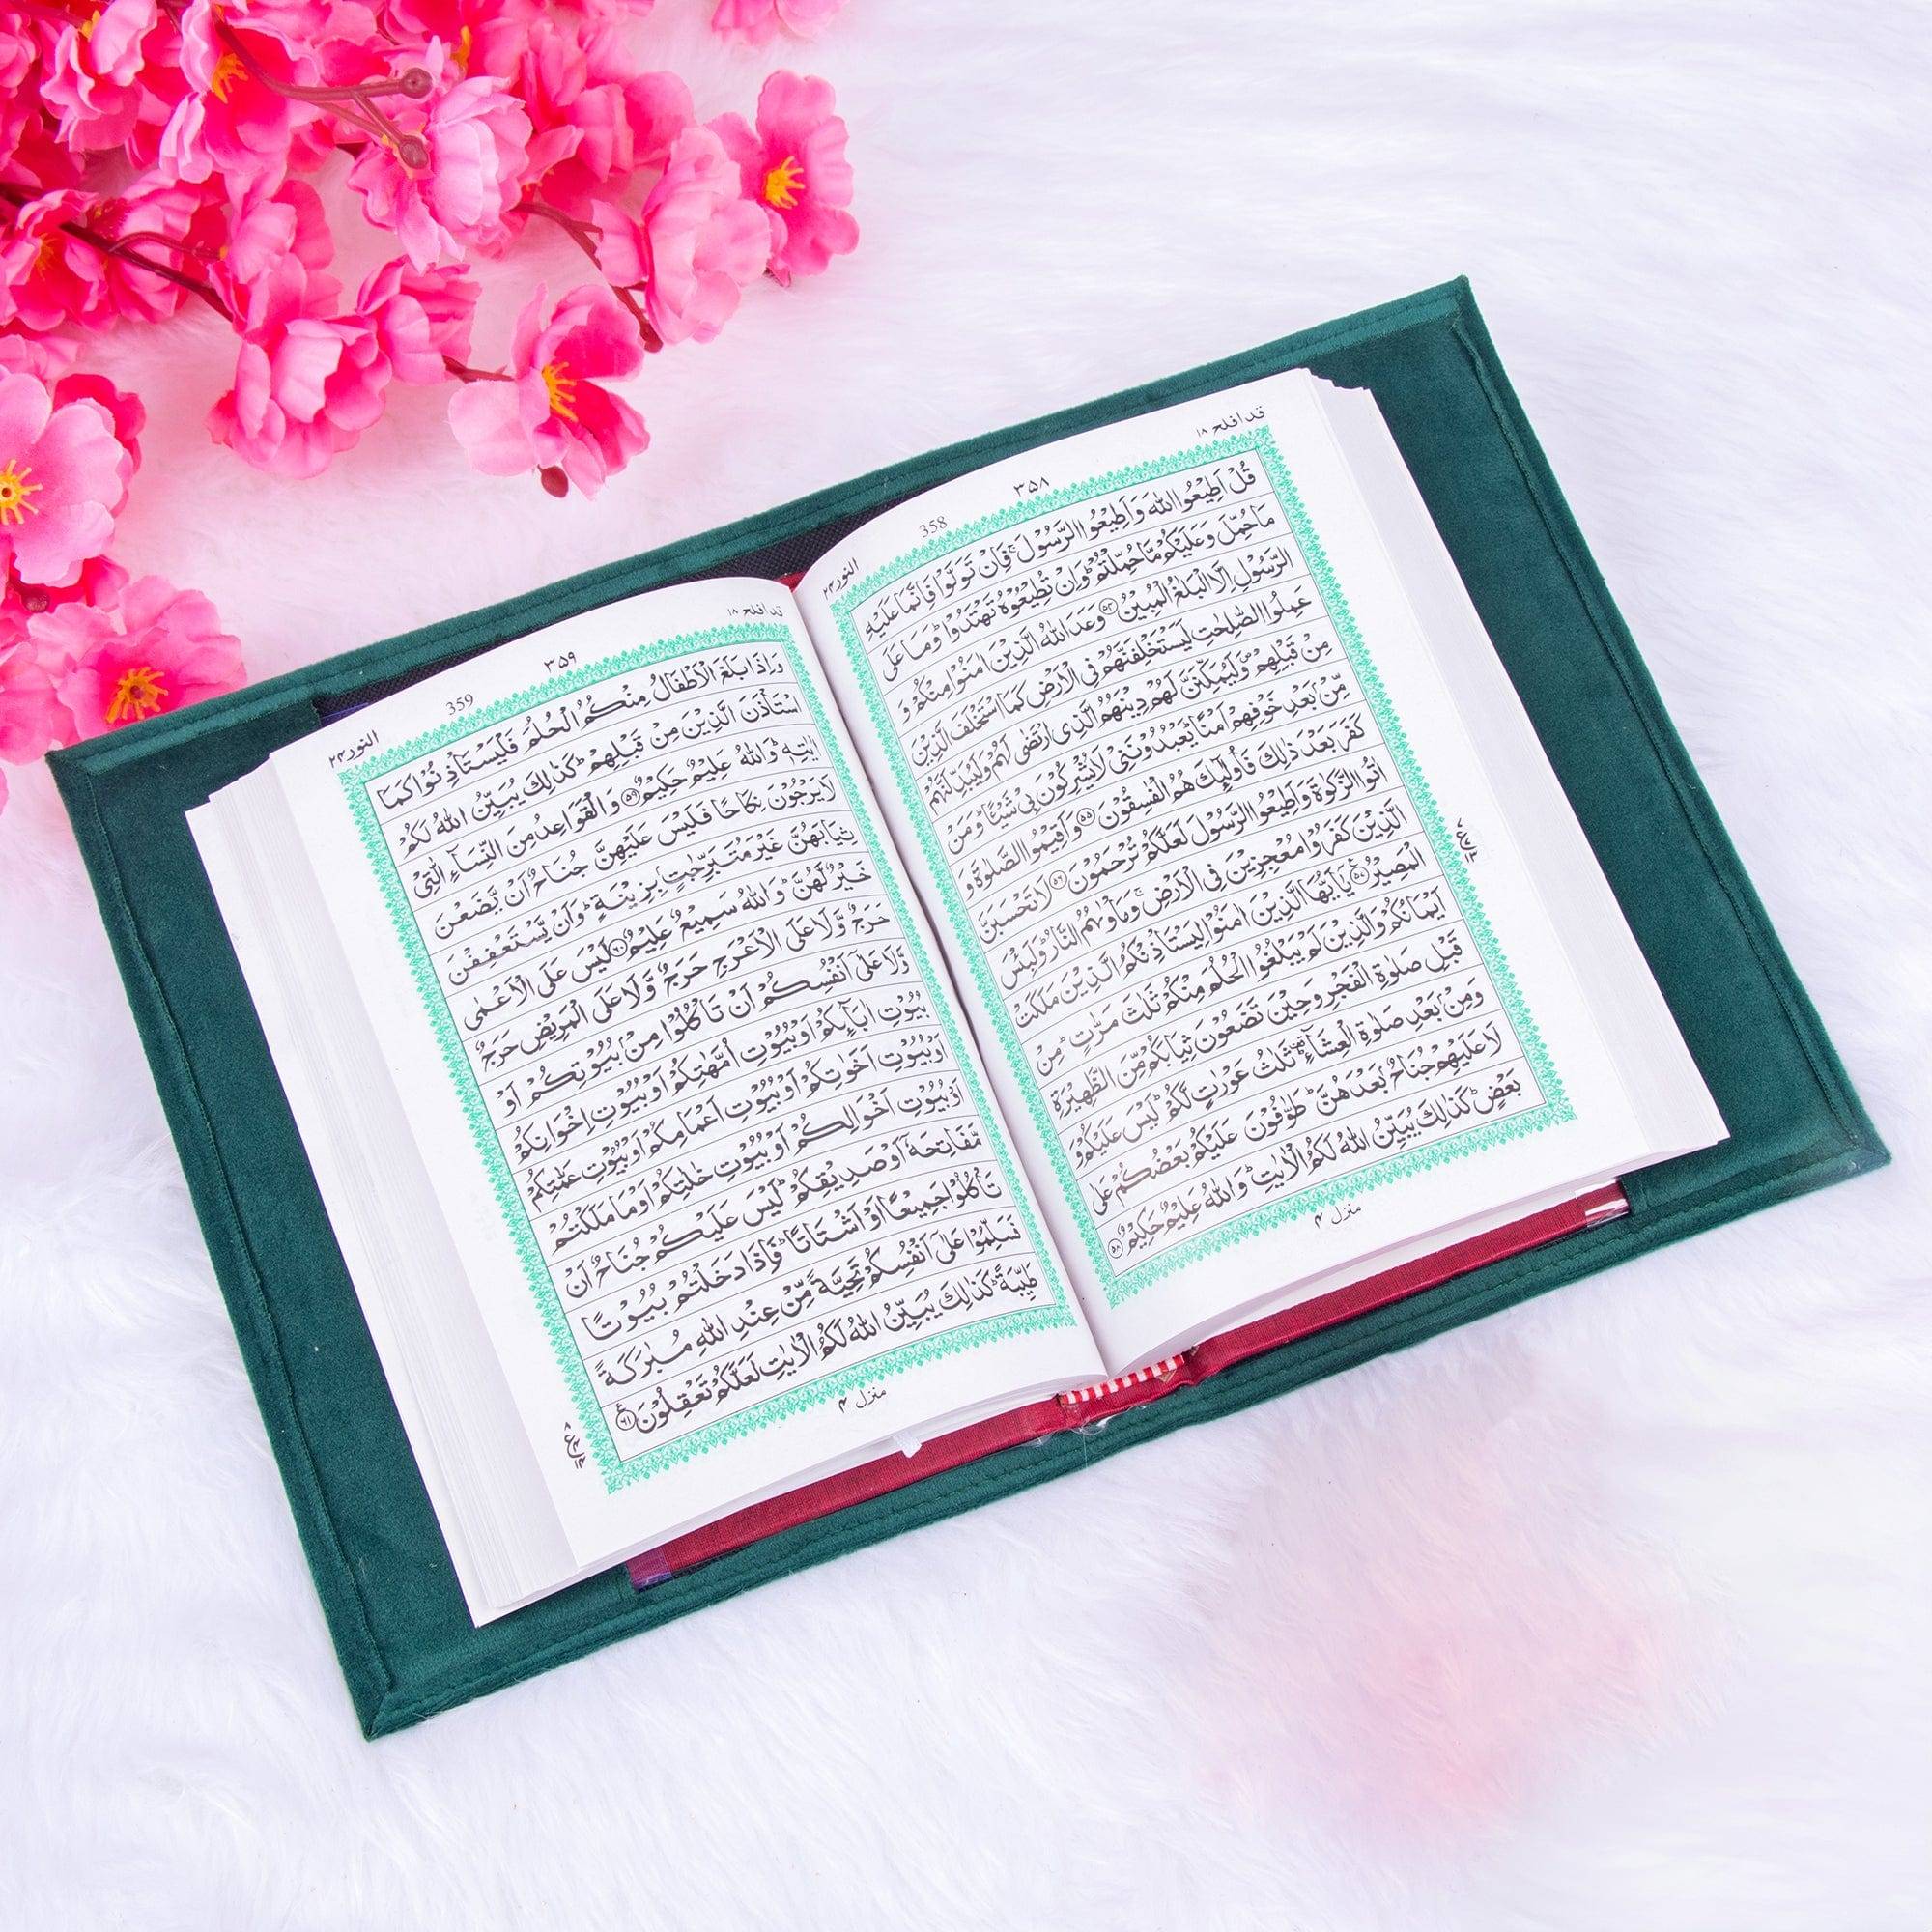 قد افلح ۱۸
۳۵۸
358
النور ۲۴
قُلْ اَطِيْعُوا اللّٰهَ وَاَطِيْعُوا الرَّسُوْلَ ۚ فَاِنْ تَوَلَّوْا فَاِنَّمَا عَلَيْهِ
مَا حُمِّلَ وَعَلَيْكُمْ مَّا حُمِّلْتُمْ ؕ وَاِنْ تُطِيْعُوْهُ تَهْتَدُوْا ؕ وَمَا عَلَى
الرَّسُوْلِ اِلَّا الْبَلٰغُ الْمُبِيْنُ ﴿۵۴﴾ وَعَدَ اللّٰهُ الَّذِيْنَ اٰمَنُوْا مِنْكُمْ وَ
عَمِلُوا الصّٰلِحٰتِ لَيَسْتَخْلِفَنَّهُمْ فِي الْاَرْضِ كَمَا اسْتَخْلَفَ الَّذِيْنَ
مِنْ قَبْلِهِمْ ۪ وَلَيُمَكِّنَنَّ لَهُمْ دِيْنَهُمُ الَّذِي ارْتَضٰى لَهُمْ وَلَيُبَدِّلَنَّهُمْ
مِّنْۢ بَعْدِ خَوْفِهِمْ اَمْنًا ؕ يَعْبُدُوْنَنِيْ لَا يُشْرِكُوْنَ بِيْ شَيْـًٔا ؕ وَمَنْ
كَفَرَ بَعْدَ ذٰلِكَ فَاُولٰٓئِكَ هُمُ الْفٰسِقُوْنَ ﴿۵۵﴾ وَاَقِيْمُوا الصَّلٰوةَ وَ
اٰتُوا الزَّكٰوةَ وَاَطِيْعُوا الرَّسُوْلَ لَعَلَّكُمْ تُرْحَمُوْنَ ﴿۵۶﴾ لَا تَحْسَبَنَّ
الَّذِيْنَ كَفَرُوْا مُعْجِزِيْنَ فِي الْاَرْضِ ۚ وَمَاْوٰىهُمُ النَّارُ ؕ وَلَبِئْسَ
الْمَصِيْرُ ﴿۵۷﴾ يٰۤاَيُّهَا الَّذِيْنَ اٰمَنُوْا لِيَسْتَاْذِنْكُمُ الَّذِيْنَ مَلَكَتْ
اَيْمَانُكُمْ وَالَّذِيْنَ لَمْ يَبْلُغُوا الْحُلُمَ مِنْكُمْ ثَلٰثَ مَرّٰتٍ ؕ مِنْ
قَبْلِ صَلٰوةِ الْفَجْرِ وَحِيْنَ تَضَعُوْنَ ثِيَابَكُمْ مِّنَ الظَّهِيْرَةِ
وَمِنْۢ بَعْدِ صَلٰوةِ الْعِشَآءِ ؕ ثَلٰثُ عَوْرٰتٍ لَّكُمْ ؕ لَيْسَ عَلَيْكُمْ وَ
لَا عَلَيْهِمْ جُنَاحٌۢ بَعْدَهُنَّ ؕ طَوّٰفُوْنَ عَلَيْكُمْ بَعْضُكُمْ عَلٰى
بَعْضٍ ؕ كَذٰلِكَ يُبَيِّنُ اللّٰهُ لَكُمُ الْاٰيٰتِ ؕ وَاللّٰهُ عَلِيْمٌ حَكِيْمٌ ﴿۵۸﴾
منزل ۴
قد افلح ۱۸
۳۵۹
359
النور ۲۴
وَاِذَا بَلَغَ الْاَطْفَالُ مِنْكُمُ الْحُلُمَ فَلْيَسْتَاْذِنُوْا كَمَا
اسْتَاْذَنَ الَّذِيْنَ مِنْ قَبْلِهِمْ ؕ كَذٰلِكَ يُبَيِّنُ اللّٰهُ لَكُمْ
اٰيٰتِهٖ ؕ وَاللّٰهُ عَلِيْمٌ حَكِيْمٌ ﴿۵۹﴾ وَالْقَوَاعِدُ مِنَ النِّسَآءِ الّٰتِيْ
لَا يَرْجُوْنَ نِكَاحًا فَلَيْسَ عَلَيْهِنَّ جُنَاحٌ اَنْ يَّضَعْنَ
ثِيَابَهُنَّ غَيْرَ مُتَبَرِّجٰتٍۭ بِزِيْنَةٍ ؕ وَاَنْ يَّسْتَعْفِفْنَ
خَيْرٌ لَّهُنَّ ؕ وَاللّٰهُ سَمِيْعٌ عَلِيْمٌ ﴿۶۰﴾ لَيْسَ عَلَى الْاَعْمٰى
حَرَجٌ وَّلَا عَلَى الْاَعْرَجِ حَرَجٌ وَّلَا عَلَى الْمَرِيْضِ حَرَجٌ
وَّلَا عَلٰۤى اَنْفُسِكُمْ اَنْ تَاْكُلُوْا مِنْۢ بُيُوْتِكُمْ اَوْ
بُيُوْتِ اٰبَآئِكُمْ اَوْ بُيُوْتِ اُمَّهٰتِكُمْ اَوْ بُيُوْتِ اِخْوَانِكُمْ
اَوْ بُيُوْتِ اَخَوٰتِكُمْ اَوْ بُيُوْتِ اَعْمَامِكُمْ اَوْ بُيُوْتِ عَمّٰتِكُمْ
اَوْ بُيُوْتِ اَخْوَالِكُمْ اَوْ بُيُوْتِ خٰلٰتِكُمْ اَوْ مَا مَلَكْتُمْ
مَّفَاتِحَهٗۤ اَوْ صَدِيْقِكُمْ ؕ لَيْسَ عَلَيْكُمْ جُنَاحٌ اَنْ
تَاْكُلُوْا جَمِيْعًا اَوْ اَشْتَاتًا ؕ فَاِذَا دَخَلْتُمْ بُيُوْتًا
فَسَلِّمُوْا عَلٰۤى اَنْفُسِكُمْ تَحِيَّةً مِّنْ عِنْدِ اللّٰهِ مُبٰرَكَةً
طَيِّبَةً ؕ كَذٰلِكَ يُبَيِّنُ اللّٰهُ لَكُمُ الْاٰيٰتِ لَعَلَّكُمْ تَعْقِلُوْنَ ﴿۶۱﴾
منزل ۴